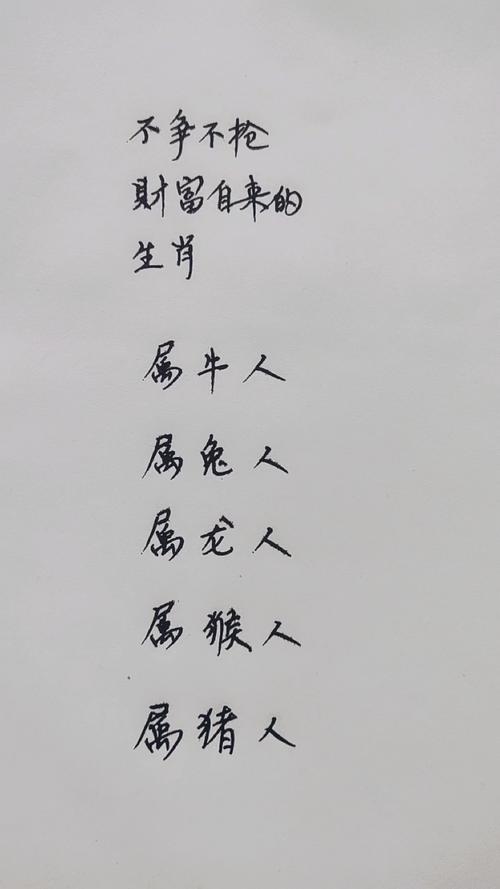 不争不抢
财富自来的
生肖
属牛人
属兔人
属龙人
属猴人
属猪人